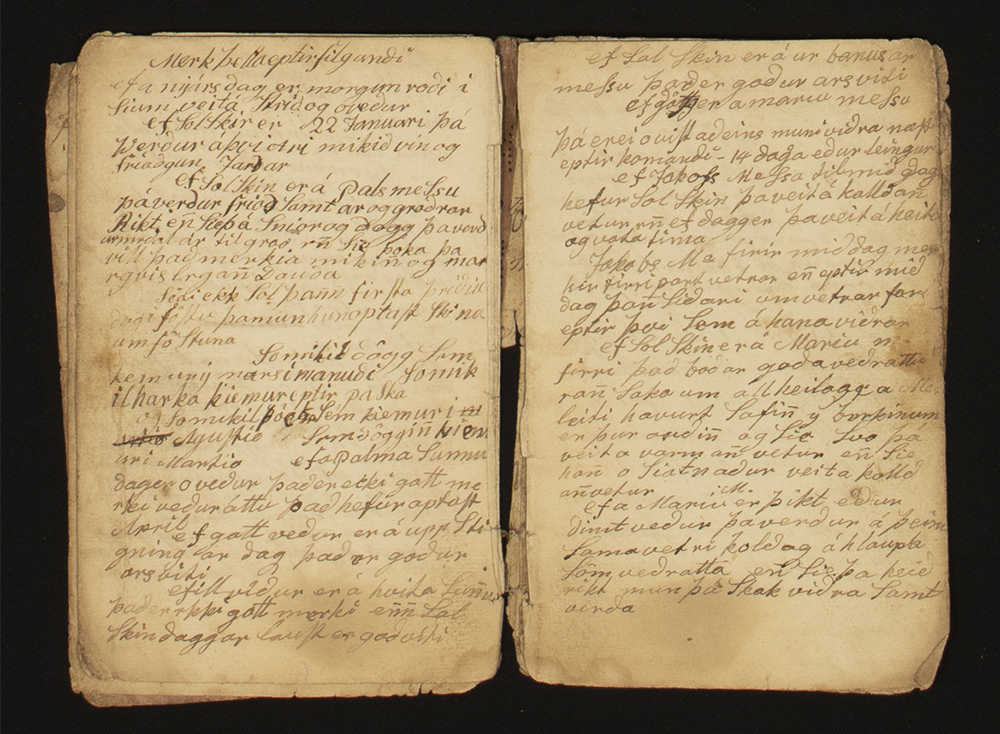 Merk þetta eptirfilgandi
ef a nyársdag er morgun roði i
Sium veita Strid og oveður
ef Sol Skin er 22 Januari þá
Verður a þvi otri mikid vin og
friodgun Jardar
ef Sol Skin er á Pals messu
þá verdur friod Samt ar og grodrar
Rikt en Siepá Sniorog dogg þa verd
ur til grod en Sie þoka þa
vill það merkia mikin og mar
rgvis Dauda
Siai ekk Sol þann firsta þridiu
dag i föstu þa mun hun optast Skina
um föstuna
So mikil dögg Sem
kemur ij marsimanudi So mik
il harka kiemur eptir paska
So mikil Sem kiemur i
Agustio Sem döggin kiem
ur i Martio ef a Palma Sunnu
dag er oveður það er ecki gott me
rki veduráttu það hefur aptast
April ef gott veður er á upp Sti
gningar dag það er goður
ars viti
ef ill viður er á hvita Sunnu
það er ekki gott merki enn Sol
Skin daggar laust er god viti
ef Sol Skin er á ur banus ar
messu það er goður ars viti
ef gott er a mariu messu
þá er ei o vist að eins muni vidra næst
eptir komandi - 14 daga eður leingur
ef Jakofs Messa til mid dag
hefur Sol Skin þa veit á kalldan
vetur en ef dagger þa veit á heita
og vota tima
Jakobs Me firir mid dag mer
kir firri part vetrar en eptir mid
dag þan Sidari um vetrar far
eptir þvi Som á hana vidrar
ef Sol Skin er a Mariu m
firri það bodar goda vedrattu
Sako um all heilagra Me
leiti havurt Safin y borkinum
er þur ordin og Sie Svo þá
veit a varman vetur en Sie
han o Siatnadur veit a kalld
an vetur
ef a Mariu M. er þikt eður
dimt veður þa verdur á þeim
Sama vetri kold og áhlaupa
Söm vedratta en Sie þa heid
rikt mun þá Skak vidra Samt
verda